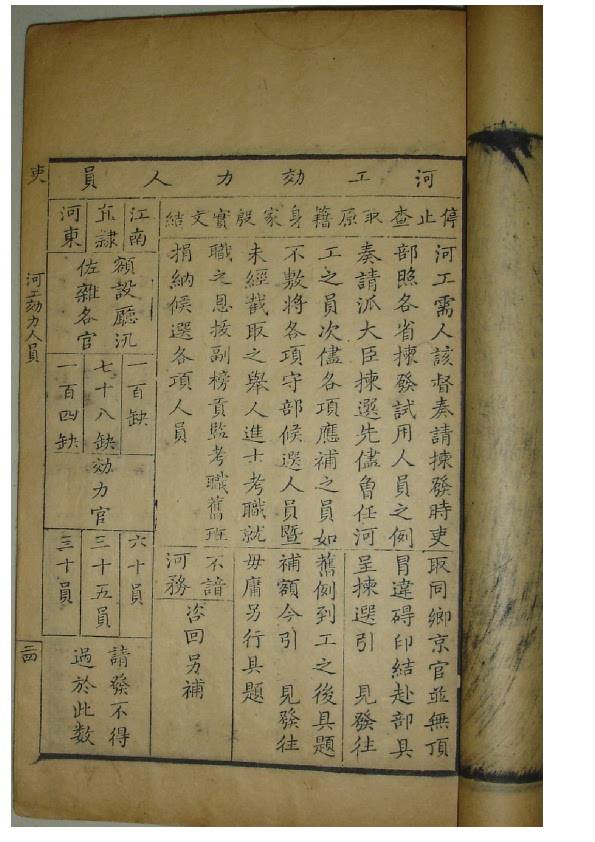 河工効力人員
停止查取原籍身家殷實文結
河工需人該督奏請揀發時吏
部照各省揀發試用人員之例
奏請派大臣揀選先儘曾任河
工之員次儘各項應補之員如
不敷將各項守部候選人員暨
未經截取之舉人進士考職就
職之恩拔副榜貢監考職舊班
捐納候選各項人員
取同鄉京官並無頂
冒違碍印結赴部具
呈揀選引 見發往
舊例到工之後具題
補額今引 見發往
毋庸另行具題
不諳
河務
咨回另補
江南
直隸
河東
額設廳汛
佐雜各官
一百缺
七十八缺
一百四缺
効力官
六十員
三十五員
三十員
請發不得
過於此数
吏
河工効力人員